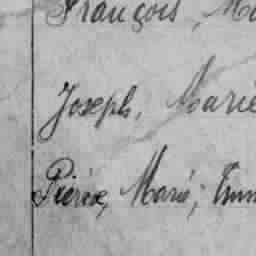 François, Ma
Joseph, Marie
Pierre, Marie,